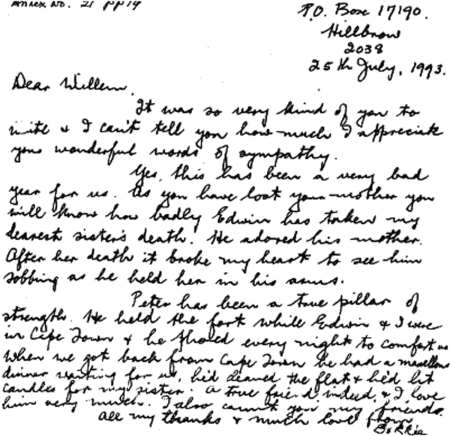 Annex No. 21 pp19
P.O. Box 17190.
Hillbrow
2038
25th July, 1993.
Dear Willem,
It was so very kind of you to
write & I can't tell you how much I appreciate
your wonderful words of sympathy.
Yes, this has been a very bad
year for us. As you have lost your mother you
will know how badly Edwin has taken my
dearest sister's death. He adored his mother.
After her death it broke my heart to see him
sobbing as he held her in his arms.
Peter has been a true pillar of
strength. He held the fort while Edwin & I were
in Cape Town & he phoned every night to comfort us
When we got back from Cape Town he had a marvellous
dinner waiting for us, he'd cleaned the flat & he'd lit
candles for my sister. A true friend, indeed, & I love
him very much. I also count you my friends.
All my thanks & much love from